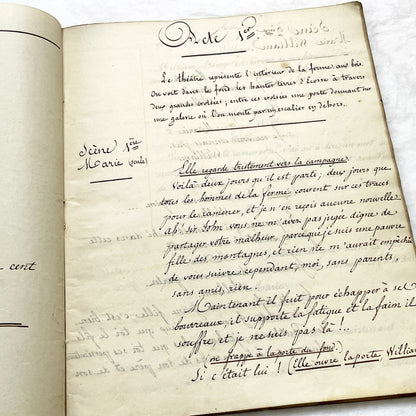 Acte 1er
Le théâtre représente l'intérieur de la ferme aux bois.
On voit dans le fond les hautes terres d'Ecosse à travers
deux grandes croisées; entre ces croisées une porte donnant sur
une galerie où l'on monte par un escalier en dehors.
Scène 1ère
Marie (seule)
Elle regarde tristement vers la campagne
Voilà deux jours qu'il est parti; deux jours que
tous les hommes de la ferme courent sur ses traces
pour le ramener, et je n'en reçois aucune nouvelle
ah! sir John vous ne m'avez pas jugée digne de
partager votre malheur, parce que je suis une pauvre
fille des montagnes, et rien ne m'aurait empêchée
de vous suivre cependant, moi, sans parents,
sans amis, rien!
Maintenant il fuit pour échapper à ses
bourreaux, il supporte la fatigue et la faim il
souffre, et je ne suis pas là!...
on frappe à la porte du fond.
Si c'était lui! (Elle ouvre la porte, Willia
cent